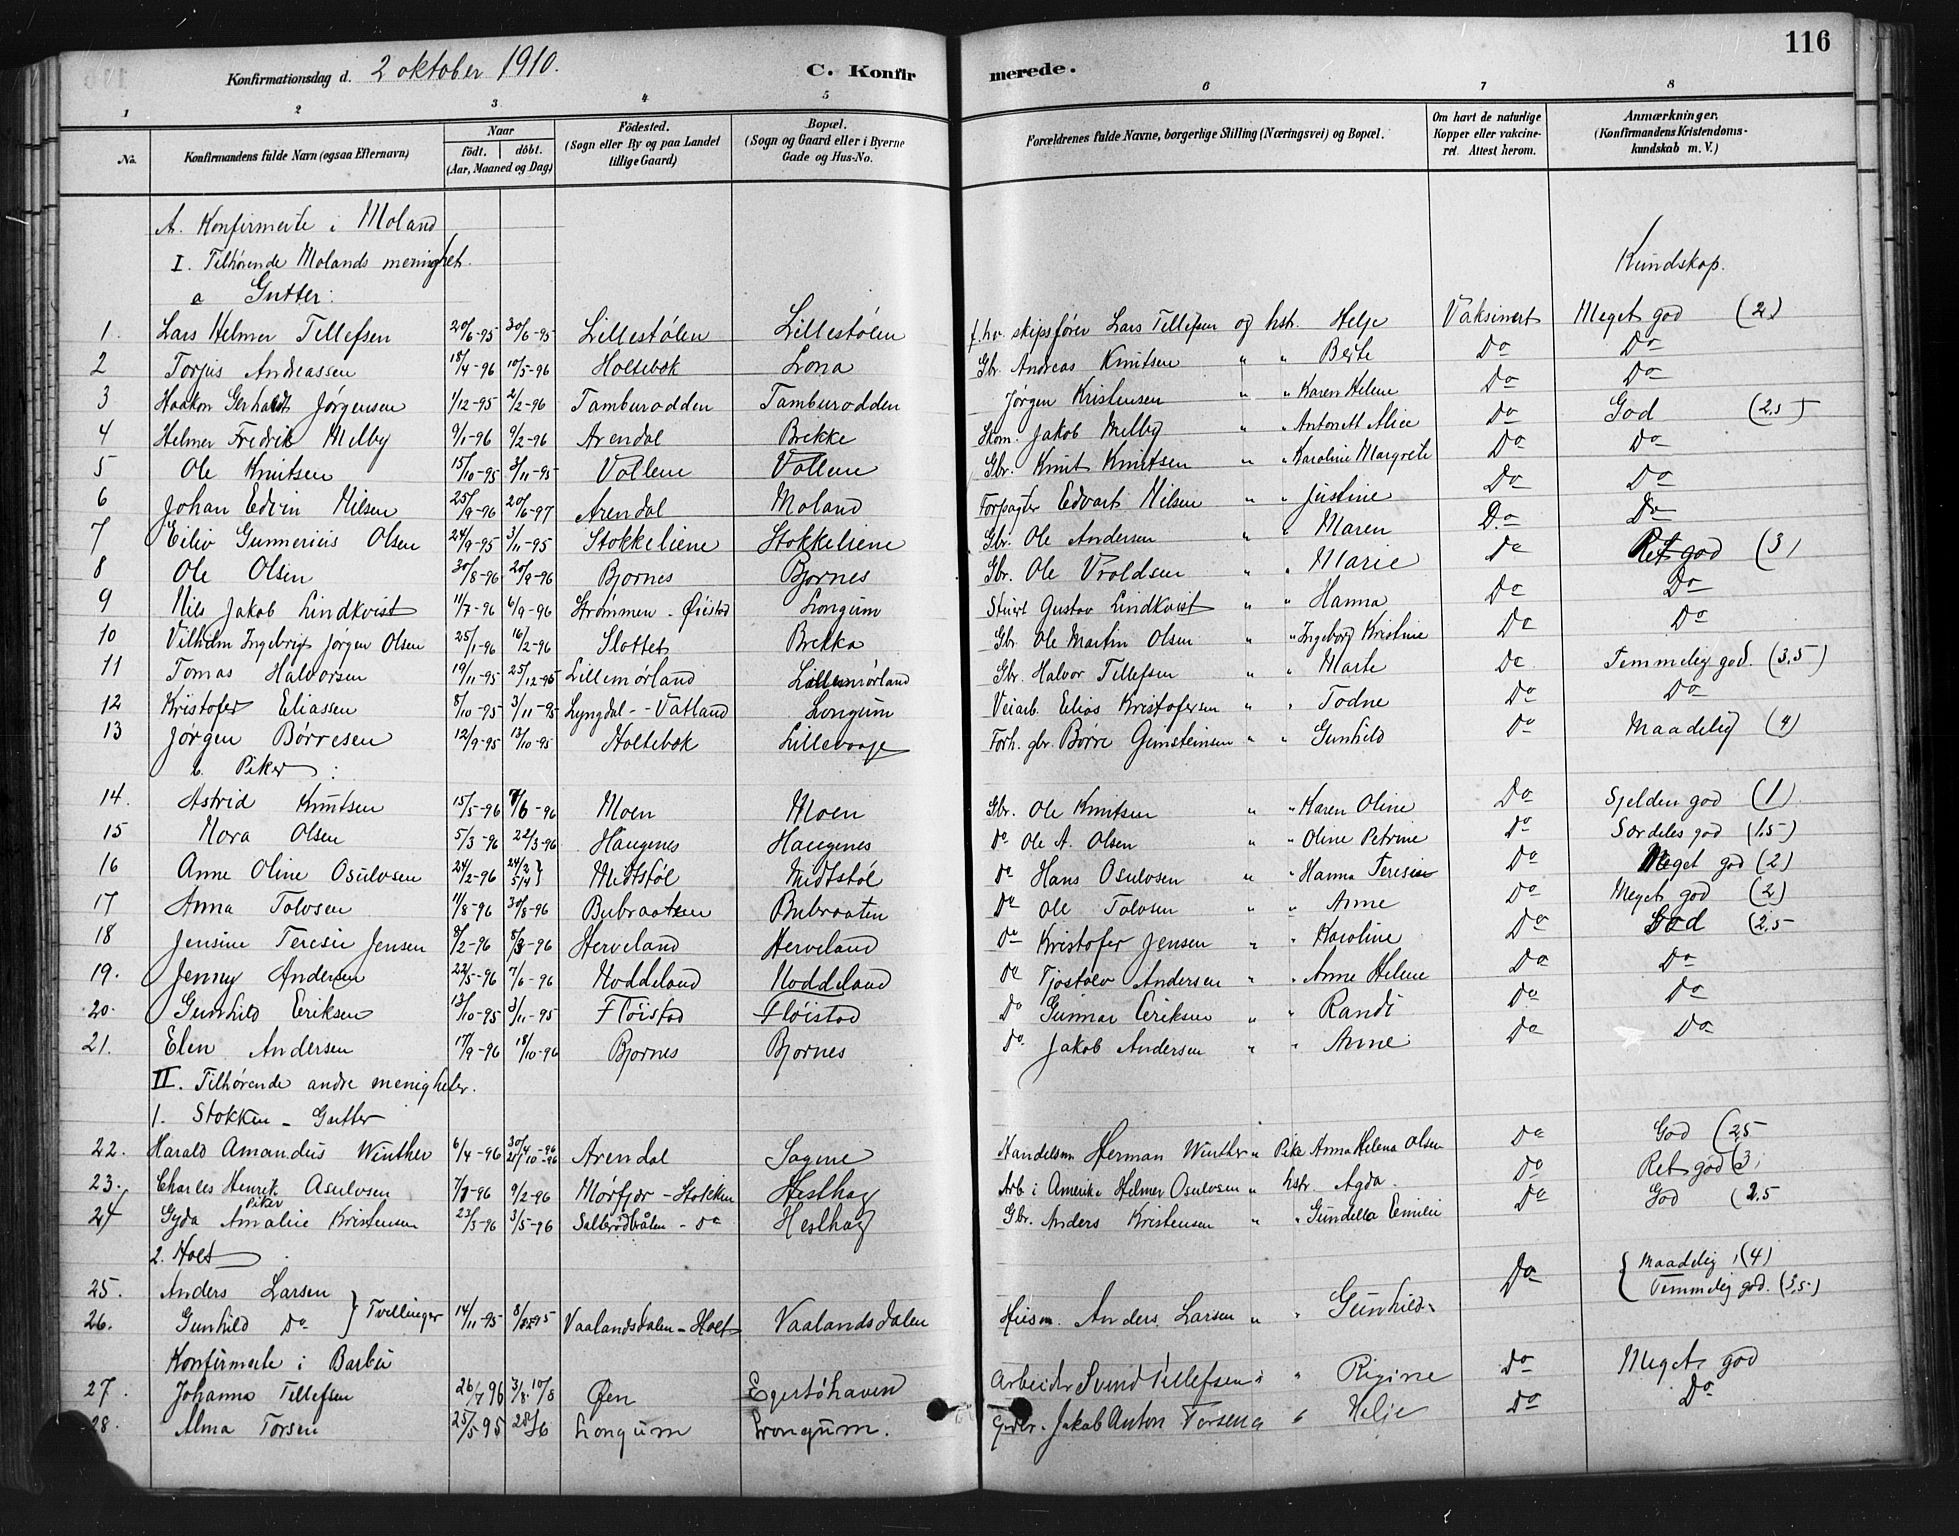 116
Konfirmationsdag d. 2 oktober 1910. C. Konfirmerede.
1 2 3 4 5 6 7 8
No. Konfirmandens fulde Navn (ogsaa Efternavn) Naar födt. döbt. (Aar, Maaned og Dag) Födested. (Sogn eller By og paa Landet tillige Gaard) Bopæl. (Sogn og Gaard eller i Byerne Gade og Hus-No. Forældrenes fulde Navne, borgerlige Stilling (Næringsvei) og Bopæl. Om havt de naturlige Kopper eller vakcineret. Attest herom. Anmærkninger. (Konfirmandens Kristendomskundskab m. V.)
A. Konfirmerte i Moland
I. Tilhørende Molands menighet. Kundskap.
a Gutter:
1. Lars Helmer Tellefsen 20/6-95 30/6-95 Lillestølen Lillestølen f.hv. skipsfører Lars Tellefsen og hst. Helje Vaksinert Meget god (2)
2 Torjus Andreassen 18/4-96 10/5-96 Holtebok Lona Gbr. Andreas Knutsen " " Berte Do Do
3 Haakon Gerhardt Jørgensen 1/12-95 2/2-96 Tamburodden Tamburodden Jørgen Kristensen " " Karen Helene Do Do
4 Helmer Fredrik Melby 9/1-96 9/2-96 Arendal Brekke Skom. Jakob Melby " " Antonett Alice Do God (2,5)
5 Ole Knutsen 15/10-95 3/11-95 Vollene Vollene Gbr. Knut Knutsen " " Karoline Margrete Do Do
6 Johan Edvin Nilsen 25/9-96 20/6-97 Arendal Moland Forpagter Edvart Nilsen " " Justine Do Do
7 Eiliv Gunnerius Olsen 24/9-95 3/11-95 Stokkeliene Stokkeliene Gbr. Ole Andersen " " Maren Do Do
8 Ole Olsen 30/8-96 20/9-96 Bjornes Bjornes Gbr. Ole Vroldsen " Marie Do Ret god (3)
9 Nils Jakob Lindkvist 11/7-96 6/9-96 Strømmen - Øiestad Longum Stuert Gustav Lindkvist " " Hanna Do Do
10 Vilhelm Ingebrigt Jørgen Olsen 25/1-96 16/2-96 Slottet Brekka Gbr. Ole Martin Olsen " " Ingeborg Kristine Do Do
11 Tomas Halvorsen 19/11-95 25/12-95 Lillemørland Lillemørland Gbr. Halvor Tellefsen " " Marte Do Temmelig god. (3,5)
12 Kristofer Eliassen 8/10-95 3/11-95 Lyngdal - Vatland Longum Veiarb. Elias Kristofersen " " Todne Do Do
13 Jørgen Børresen 12/9-95 13/10-95 Holtebok Lillevaaje Forh. gbr. Børre Gunsteinsen " " Gunhild Do Maadelig (4)
b. Piker:
14. Astrid Knutsen 15/5-96 7/6-96 Moen Moen Gbr. Ole Knutsen " " Karen Oline Do Sjelden god (1)
15 Nora Olsen 5/3-96 22/3-96 Haugenes Haugenes Do Ole A. Olsen " " Oline Petrine Do Særdeles god (1,5)
16 Anne Oline Osulvsen 24/2-96 24/2 5/4} Midtstøl Midtstøl Do Hans Osulvsen " " Hanna Teresie Do Meget god (2)
17 Anna Tolvsen 11/8-96 30/8-96 Bubraaten Bubraaten Do Ole Tolvsen " " Anne Do Meget god (2)
18 Jensine Teresie Jensen 9/2-96 8/3-96 Herveland Herveland Do Kristofer Jensen " " Karoline Do God (2,5
19. Jenny Andersen 22/5-96 7/6-96 Noddeland Noddeland Do Tjostolv Andersen " " Anne Helene Do Do
20. Gunhild Eriksen 13/10-95 3/11-95 Fløistad Fløistad Do Gunnar Eriksen " " Randi Do Do
21. Elen Andersen 17/9-96 18/10-96 Bjornes Bjornes Do Jakob Andersen " " Anne Do Do
II. Tilhørende andre menigheter.
1. Stokken - Gutter
22. Harald Amandus Winther 6/4-96 Arendal Sagene Handelsm Herman Winther " Pike Anna Helena Olsen Do God (2,5
23. Charles Henrik Osulvsen 7/1-96 9/2-96 Mørfjær - Stokken Hesthag Arb. i Amerika Helmer Osulvsen " hstr Agda. Do Ret god (3)
Piker
24 Gyda Amalie Kristensen 23/3-96 3/5-96 Sallerødbålen - Do Hesthag Gbr. Anders Kristensen " " Gundella Emilie Do God (2,5
2. Holt
25. Anders Larsen Do { Maadelig (4)
26. Gunhild Do } Tvillinger 14/11-95 8/12-95 Vaalandsdalen - Holt Vaalandsdalen Husm. Anders Larsen " " Gunhild Temmelig god. (3,5)
Konfirmerte i Barbu
27. Johanna Tellefsen 26/7 96 3/8 10/8 Øen Egertshaven Arbeider Svend Tellefsen " Rigine Do Meget god
28. Alma Torsen 25/5 95 28/6 Longum Longum. Grdbr. Jakob Anton Torsen " Helje Do Do